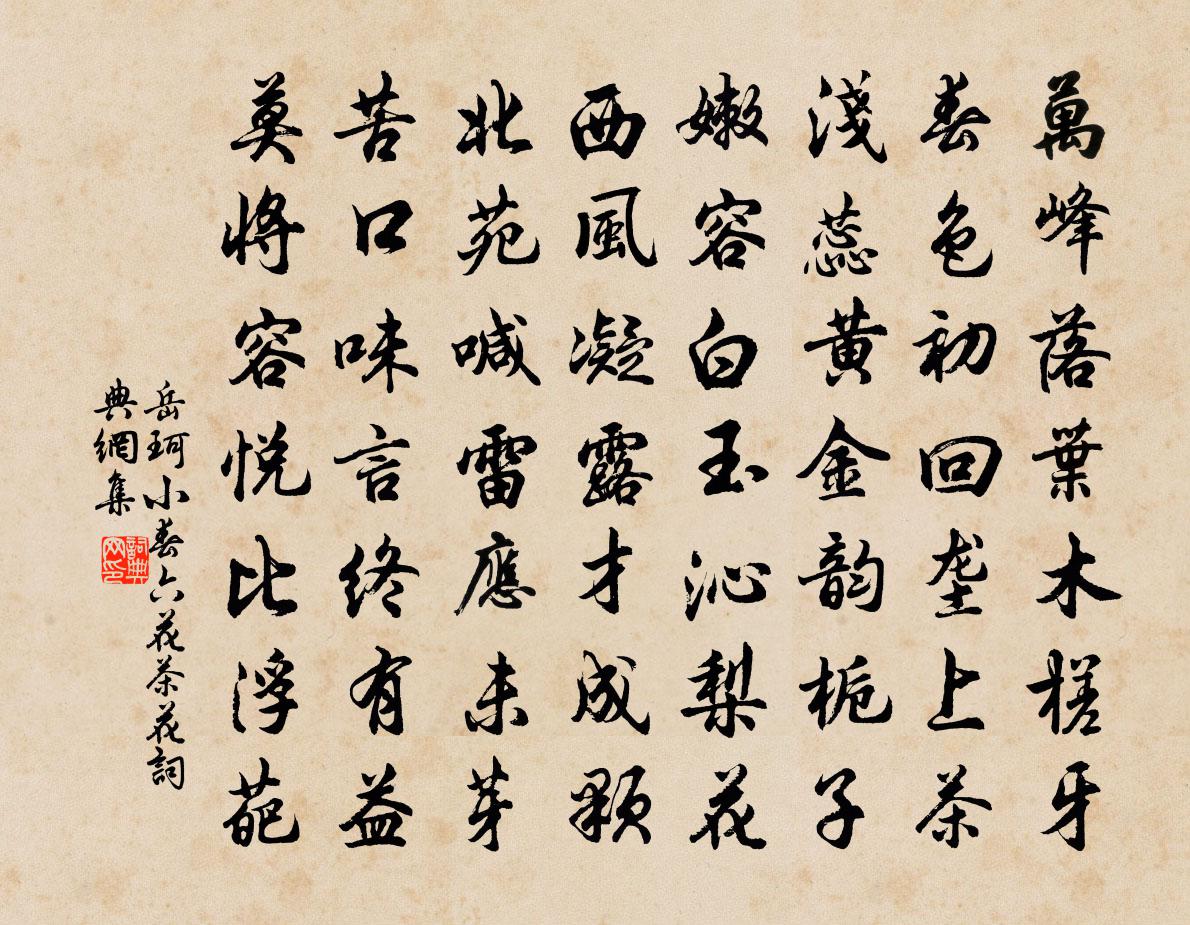 萬峰落葉木槎牙
春色初回垄上茶
淺蕊黃金韵栀子
嫩容白玉沁梨花
西風凝露才成顆
北苑喊雷應未芽
苦口味言終有益
莫將容悅比浮葩
岳珂小春六花茶花詞
典網集
詞典网印